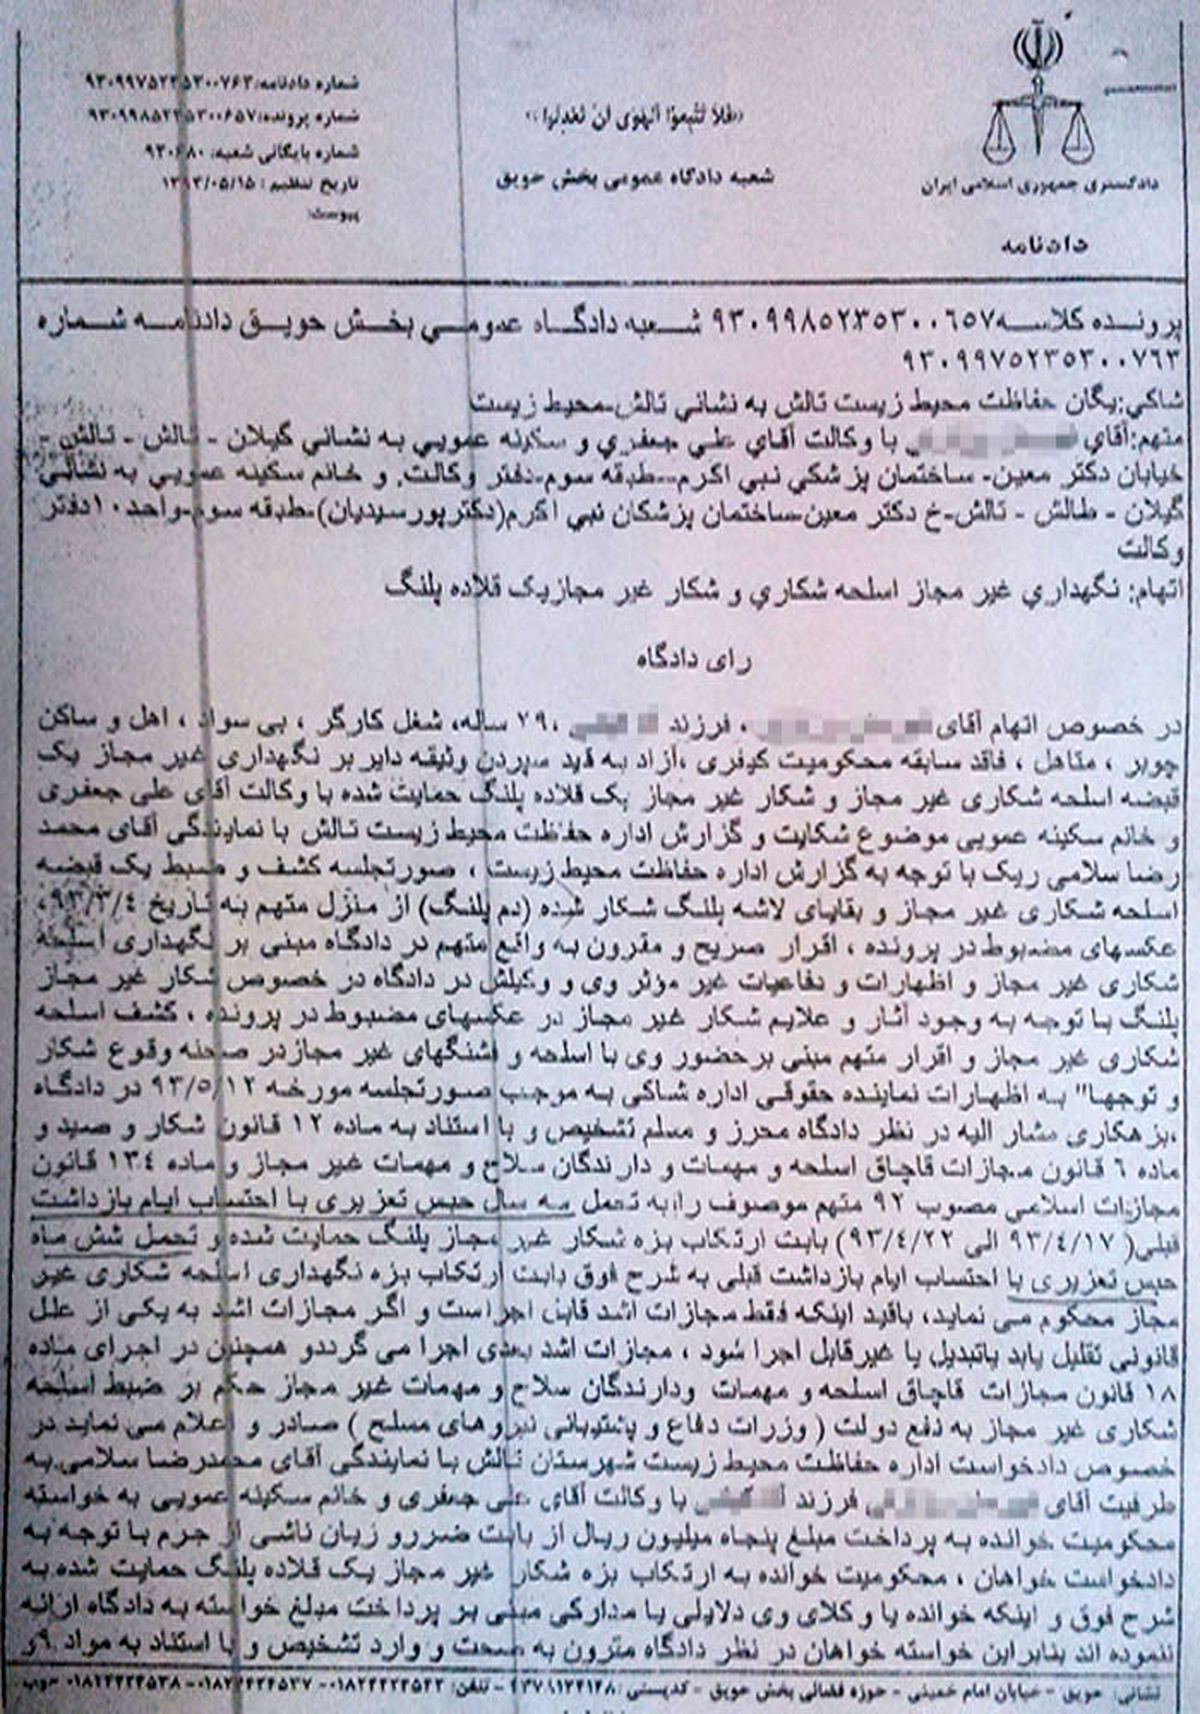 دادگستری جمهوری اسلامی ایران
دادنامه
«فلا تتبعوا الهوی ان تعدلوا»
شعبه دادگاه عمومی بخش حویق
شماره دادنامه: ۹۳۰۹۹۷۵۲۳۵۳۰۰۷۶۳
شماره پرونده: ۹۳۰۹۹۸۵۲۳۵۳۰۰۶۵۷
شماره بایگانی شعبه: ۹۳۰۶۸۰
تاریخ تنظیم: ۱۳۹۳/۰۵/۱۵
پیوست:
پرونده کلاسه ۹۳۰۹۹۸۵۲۳۵۳۰۰۶۵۷ شعبه دادگاه عمومي بخش حويق دادنامه شماره
۹۳۰۹۹۷۵۲۳۵۳۰۰۷۶۳
شاکي:يگان حفاظت محيط زيست تالش به نشاني تالش-محيط زيست
متهم:آقاي با وکالت آقاي علي جعفري و سکينه عمويي به نشاني گيلان - تالش - تالش -
خيابان دکتر معين- ساختمان پزشکي نبي اکرم--طبقه سوم-دفتر وکالت. و خانم سکينه عمويي به نشاني
گيلان - طالش - تالش-خ دکتر معين-ساختمان پزشکان نبي اکرم(دکترپورسيديان)-طبقه سوم-واحد ۱۰دفتر
وکالت
اتهام: نگهداري غير مجاز اسلحه شکاري و شکار غير مجازيک قلاده پلنگ
رای دادگاه
در خصوص اتهام آقای ، فرزند ، ۲۹ ساله، شغل کارگر ، بی سواد ، اهل و ساکن
چوبر ، متاهل ، فاقد سابقه محکومیت کیفری ،آزاد به قید سپردن وثیقه دایر بر نگهداری غیر مجاز یک
قبضه اسلحه شکاری غیر مجاز و شکار غیر مجاز یک قلاده پلنگ حمایت شده با وکالت آقای علی جعفری
و خانم سکینه عمویی موضوع شکایت و گزارش اداره حفاظت محیط زیست تالش با نمایندگی آقای محمد
رضا سلامی ریک با توجه به گزارش اداره حفاظت محیط زیست ، صورتجلسه کشف و ضبط یک قبضه
اسلحه شکاری غیر مجاز و بقایای لاشه پلنگ شکار شده (دم پلنگ) از منزل متهم به تاریخ ۹۳/۳/۴،
عکسهای مضبوط در پرونده ، اقرار صریح و مقرون به واقع متهم در دادگاه مبنی بر نگهداری اسلحه
شکاری غیر مجاز و اظهارات و دفاعیات غیر مؤثر وی و وکیلش در دادگاه در خصوص شکار غیر مجاز
پلنگ با توجه به وجود آثار و علایم شکار غیر مجاز در عکسهای مضبوط در پرونده ، کشف اسلحه
شکاری غیر مجاز و اقرار متهم مبنی برحضور وی با اسلحه و فشنگهای غیر مجازدر صحنه وقوع شکار
و توجها" به اظهارات نماینده حقوقی اداره شاکی به موجب صورتجلسه مورخه ۹۳/۵/۱۲ در دادگاه
،بزهکاری مشار الیه در نظر دادگاه محرز و مسلم تشخیص و با استناد به ماده ۱۲ قانون شکار و صید و
ماده ۶ قانون مجازات قاچاق اسلحه و مهمات و دارندگان سلاح و مهمات غیر مجاز و ماده ۱۳٤ قانون
مجازات اسلامی مصوب ۹۲ متهم موصوف را به تحمل سه سال حبس تعزیری با احتساب ایام بازداشت
قبلی( ۹۳/٤/۱۷ الی ۹۳/٤/۲۲) بابت ارتکاب بزه شکار غیر مجاز پلنگ حمایت شده و تحمل شش ماه
حبس تعزیری با احتساب ایام بازداشت قبلی به شرح فوق بابت ارتکاب بزه نگهداری اسلحه شکاری غیر
مجاز محکوم می نماید، باقید اینکه فقط مجازات اشد قابل اجراست و اگر مجازات اشد به یکی از علل
قانونی تقلیل یابد یاتبدیل یا غیرقابل اجرا شود ، مجازات اشد بعدی اجرا می گرددو همچنین در اجرای ماده
۱۸ قانون مجازات قاچاق اسلحه و مهمات ودارندگان سلاح و مهمات غیر مجاز حکم بر ضبط اسلحه
شکاری غیر مجاز به نفع دولت ( وزرات دفاع و پشتیبانی نیروهای مسلح ) صادر و اعلام می نماید در
خصوص دادخواست اداره حفاظت محیط زیست شهرستان تالش با نمایندگی آقای محمدرضا سلامی به
طرفیت آقای فرزند با وکالت آقای علی جعفری و خانم سکینه عمویی به خواسته
محکومیت خوانده به پرداخت مبلغ پنجاه میلیون ریال از بابت ضررو زیان ناشی از جرم با توجه به
دادخواست خواهان ، محکومیت خوانده به ارتکاب بزه شکار غیر مجاز یک قلاده پلنگ حمایت شده به
شرح فوق و اینکه خوانده یا وکلای وی دلایلی یا مدارکی مبنی بر پرداخت مبلغ خواسته به دادگاه ارائه
ننموده اند بنابراین خواسته خواهان در نظر دادگاه مقرون به صحت و وارد تشخیص و با استناد به مواد ۹ و
نشانی: حویق - خیابان امام خمینی - حوزه قضائی بخش حویق - کدپستی: - تلفن: